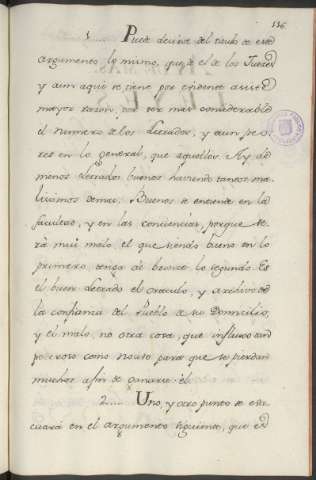 136.
1..... Puede decirse del titulo de este
argumento lo mismo, que de el de los Jueces
y aun aqui se tiene por evidente asiste
mayor razon, por ser mas considerable
el numero de los Letrados, y aun peo-
res en lo general, que aquellos. Ay al
menos Letrados buenos haviendo tantos ma-
lisimos demas. Buenos se entiende en la
facultad, y en las conciencias, porque se-
rà mui malo el que siendo bueno en lo
primero, tenga de bronce lo segundo. Es
el buen Letrado el oraculo, y archivo de
la confianza del Pueblo de su Domicilio,
y el malo, no otra cosa, que influxo tan
poderoso como para que se pierdan
muchos afin de ganarse èl.
2..... Uno, y otro punto se
en el argumento siguiente, que es